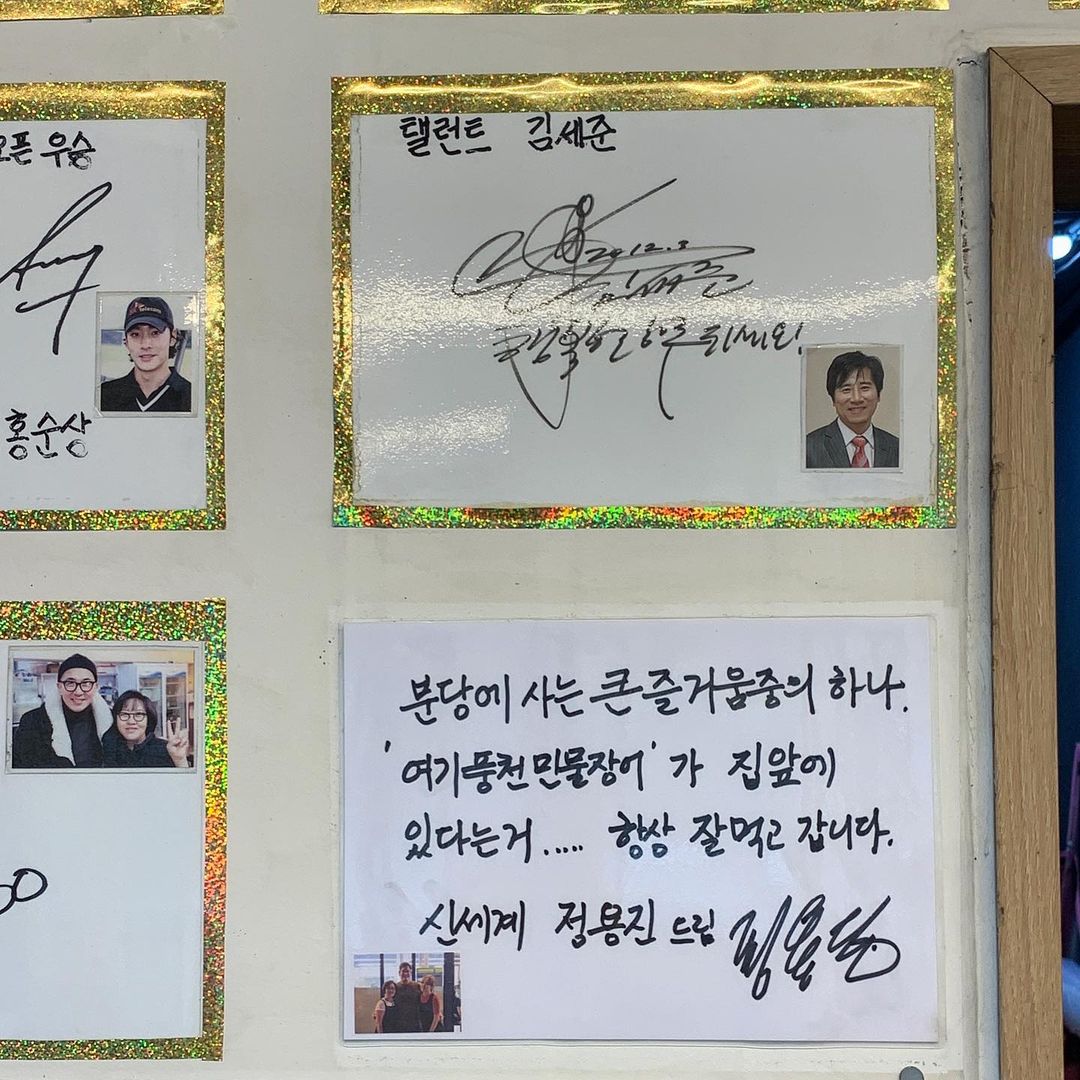 오픈 우승
홍순상
탤런트 김세준
2012.3
김세준
분당에 사는 큰 즐거움중의 하나.
'여기풍천민물장어'가 집앞에
있다는거..... 항상 잘먹고 갑니다.
신세계 정용진 드림